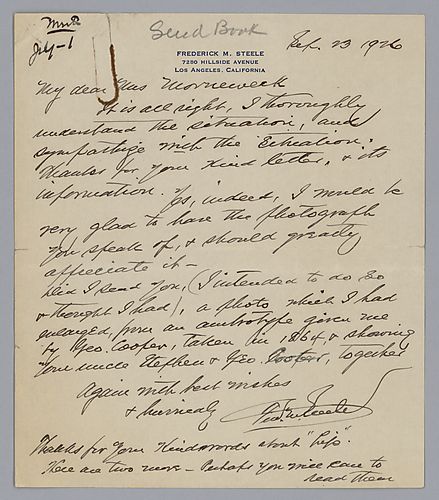 Send Book
July-1
FREDERICK M. STEELE
7280 HILLSIDE AVENUE
LOS ANGELES, CALIFORNIA
Sep. 23 1926
My dear Miss Morneweck
It is all right, I thoroughly
understand the situation, and
sympathize with the situation.
Thanks for your kind letter, & its
information. Yes, indeed, I would be
very glad to have the photograph
you speak of, & should greatly
appreciate it –
Did I send you, (I intended to do so
& thought I had), a photo which I had
enlarged, from an ambrotype given me
by Geo. Cooper, taken in 1864 & showing
your uncle Stephen & Geo. Cooper, together
Again with best wishes
& hurriedly
Fred. M. Steele
Thanks for your kind words about
Here are two more – Perhaps you will care to
read them